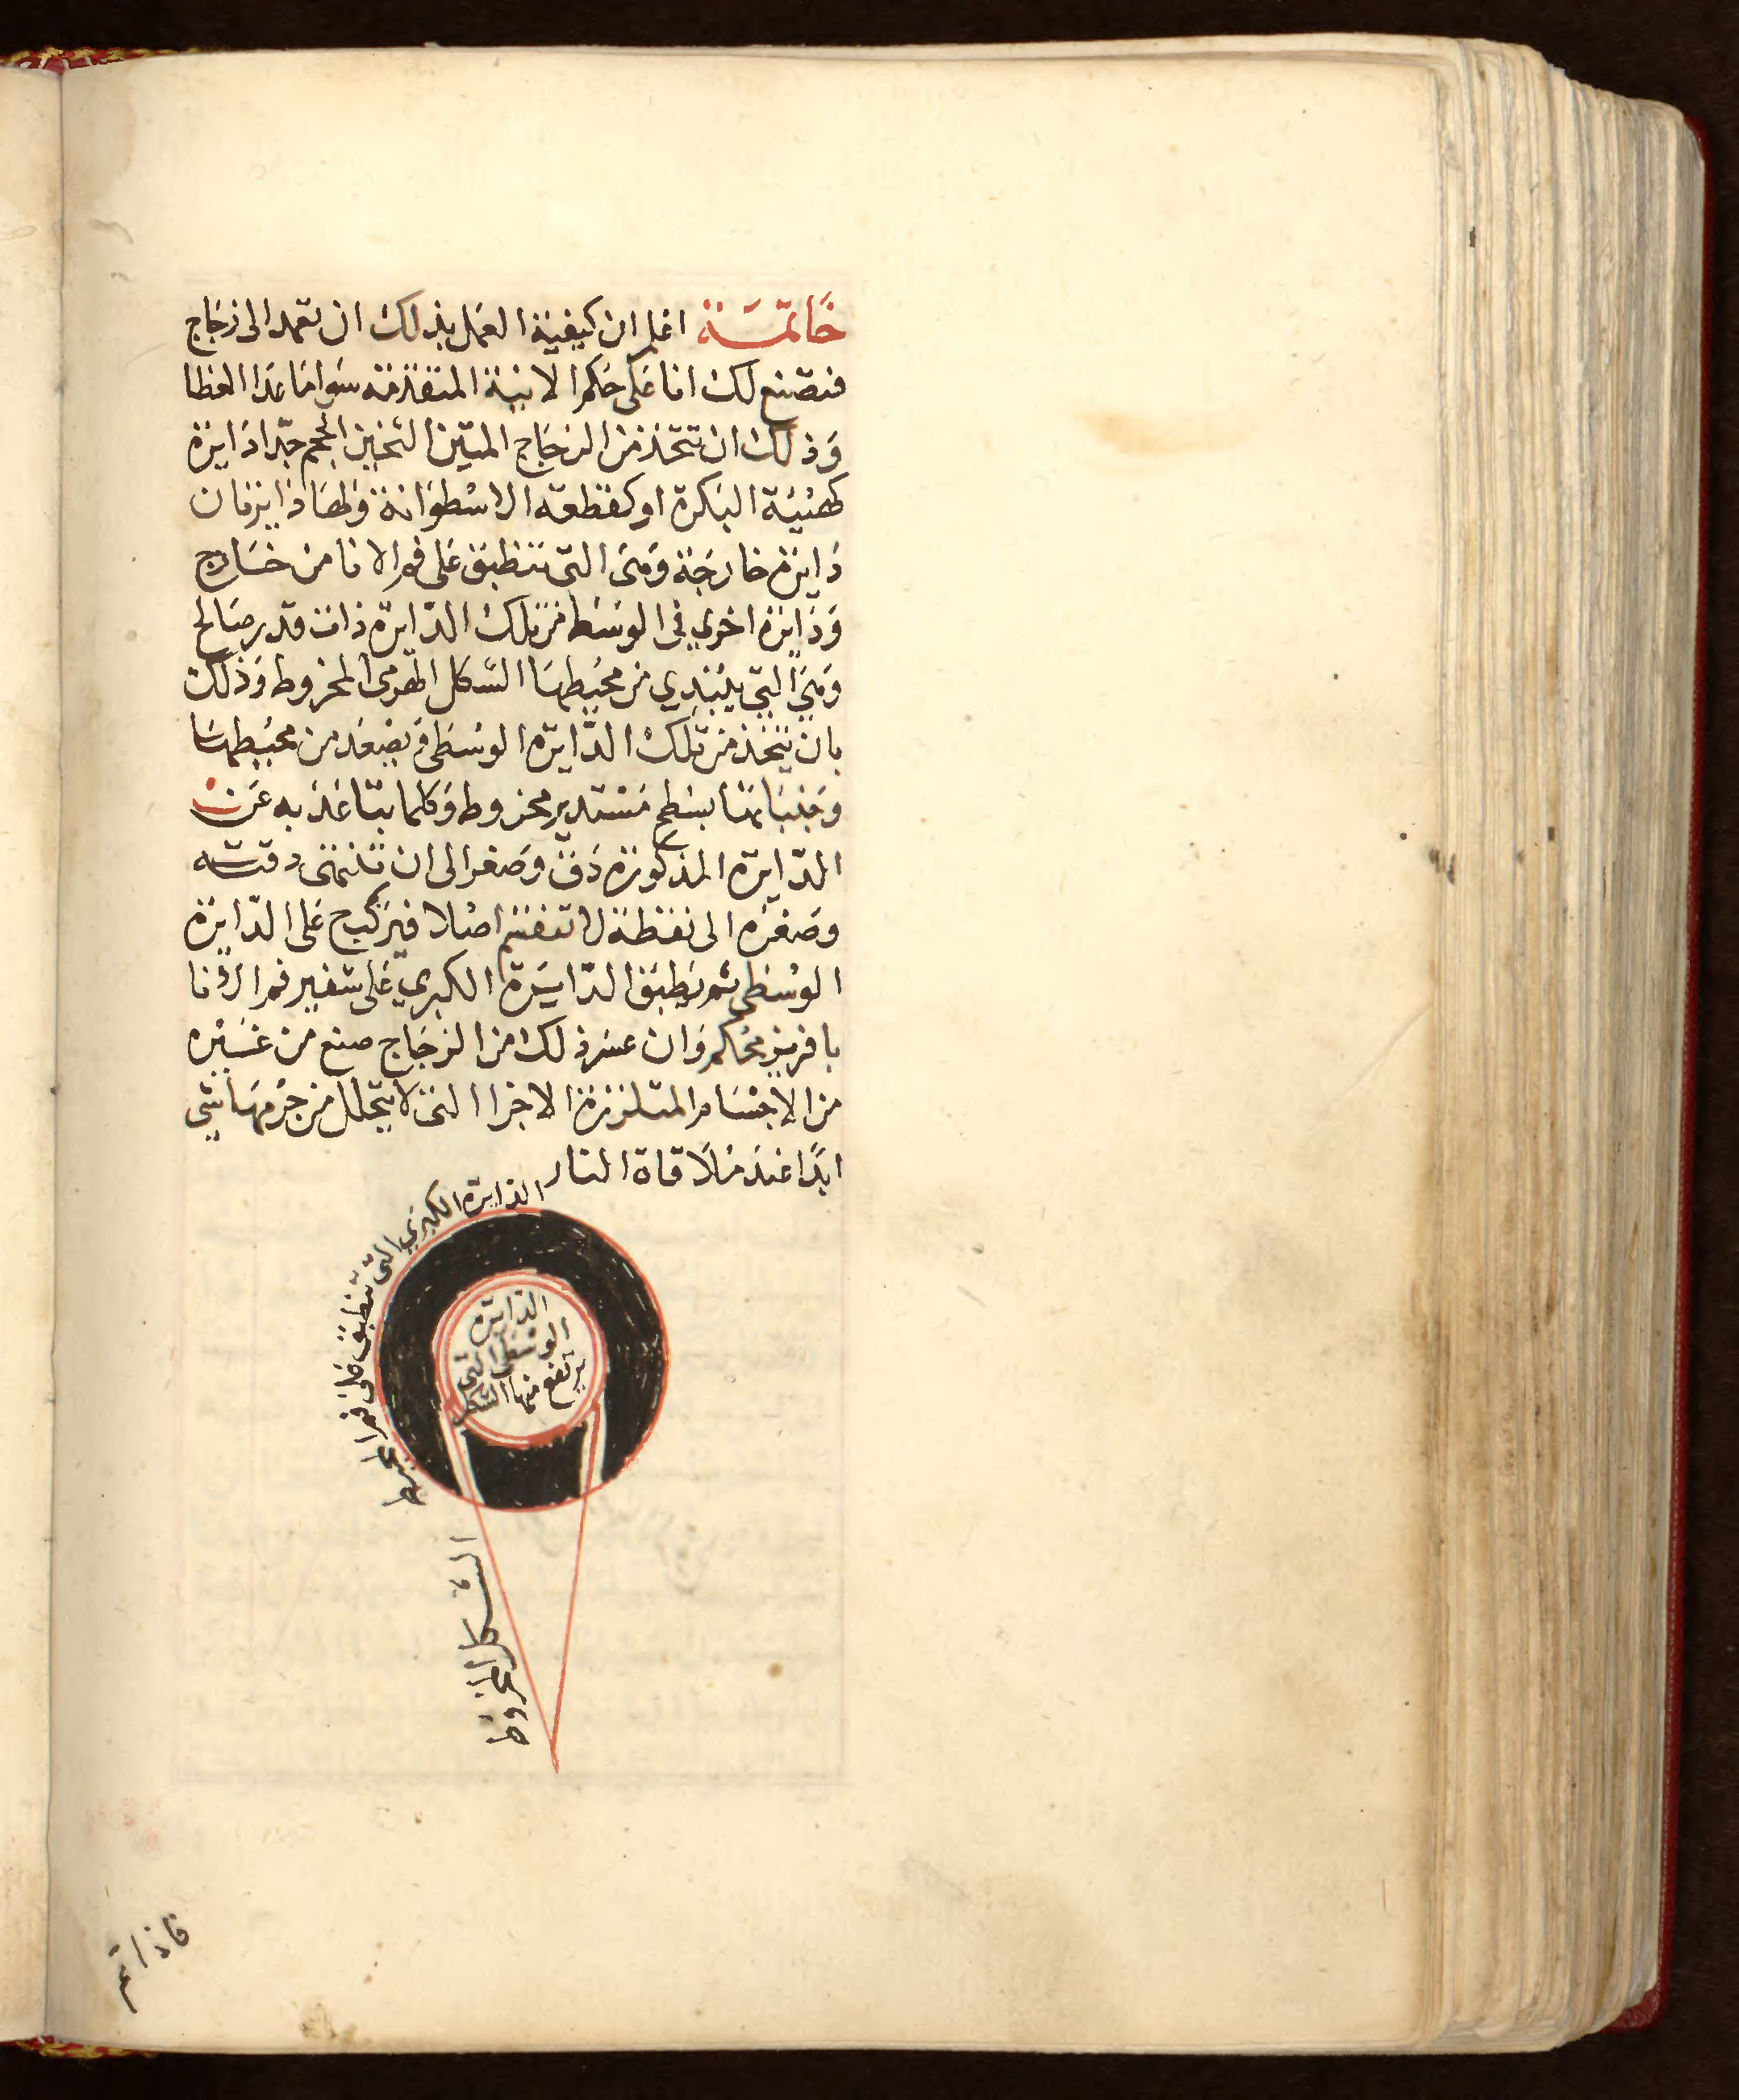 خاتمة اعلم ان كيفية العمل بذلك ان تعمد الى زجاج
فتصنع لك انا على حكم الابنية المتقدمة سوا ما عدا الغطا
وذلك ان تتخذ من الزجاج المتين الثخين الحجم جدا دايرة
كهيئة البكرة او كقطعة الاسطوانة ولها دايرتان
دايرة خارجة وهى التى تنطبق على فم الانا من خارج
ودايرة اخري فى الوسط من تلك الدايرة ذات قدر صالح
وهى التى يبتدي من محيطها الشكل الهرمى المخروط وذلك
بان يتخذ من تلك الدايرة الوسطى ويصعد من محيطها
وجنباتها بسطح مستدير مخروط وكلما يتباعد به عن
الدايرة المذكورة دق وصغر الى ان تنتهى دقته
وصغره الى نقطة لا تنقسم اصلا فيركب على الدايرة
الوسطى ثم يطبق الدايرة الكبري على شفير فم الانا
بافريز محكم وان عسر ذلك من الزجاج صنع من غيره
من الاجسام المتلززة الاجزا التى لا يتحلل من جرمها شى
ابدا عند ملاقاة النار
الدايرة الكبري التى تنطبق على فم المحيط
الدايرة
الوسطى التى
يرتفع منها الشكل
الشكل المخروط
فاذا تم